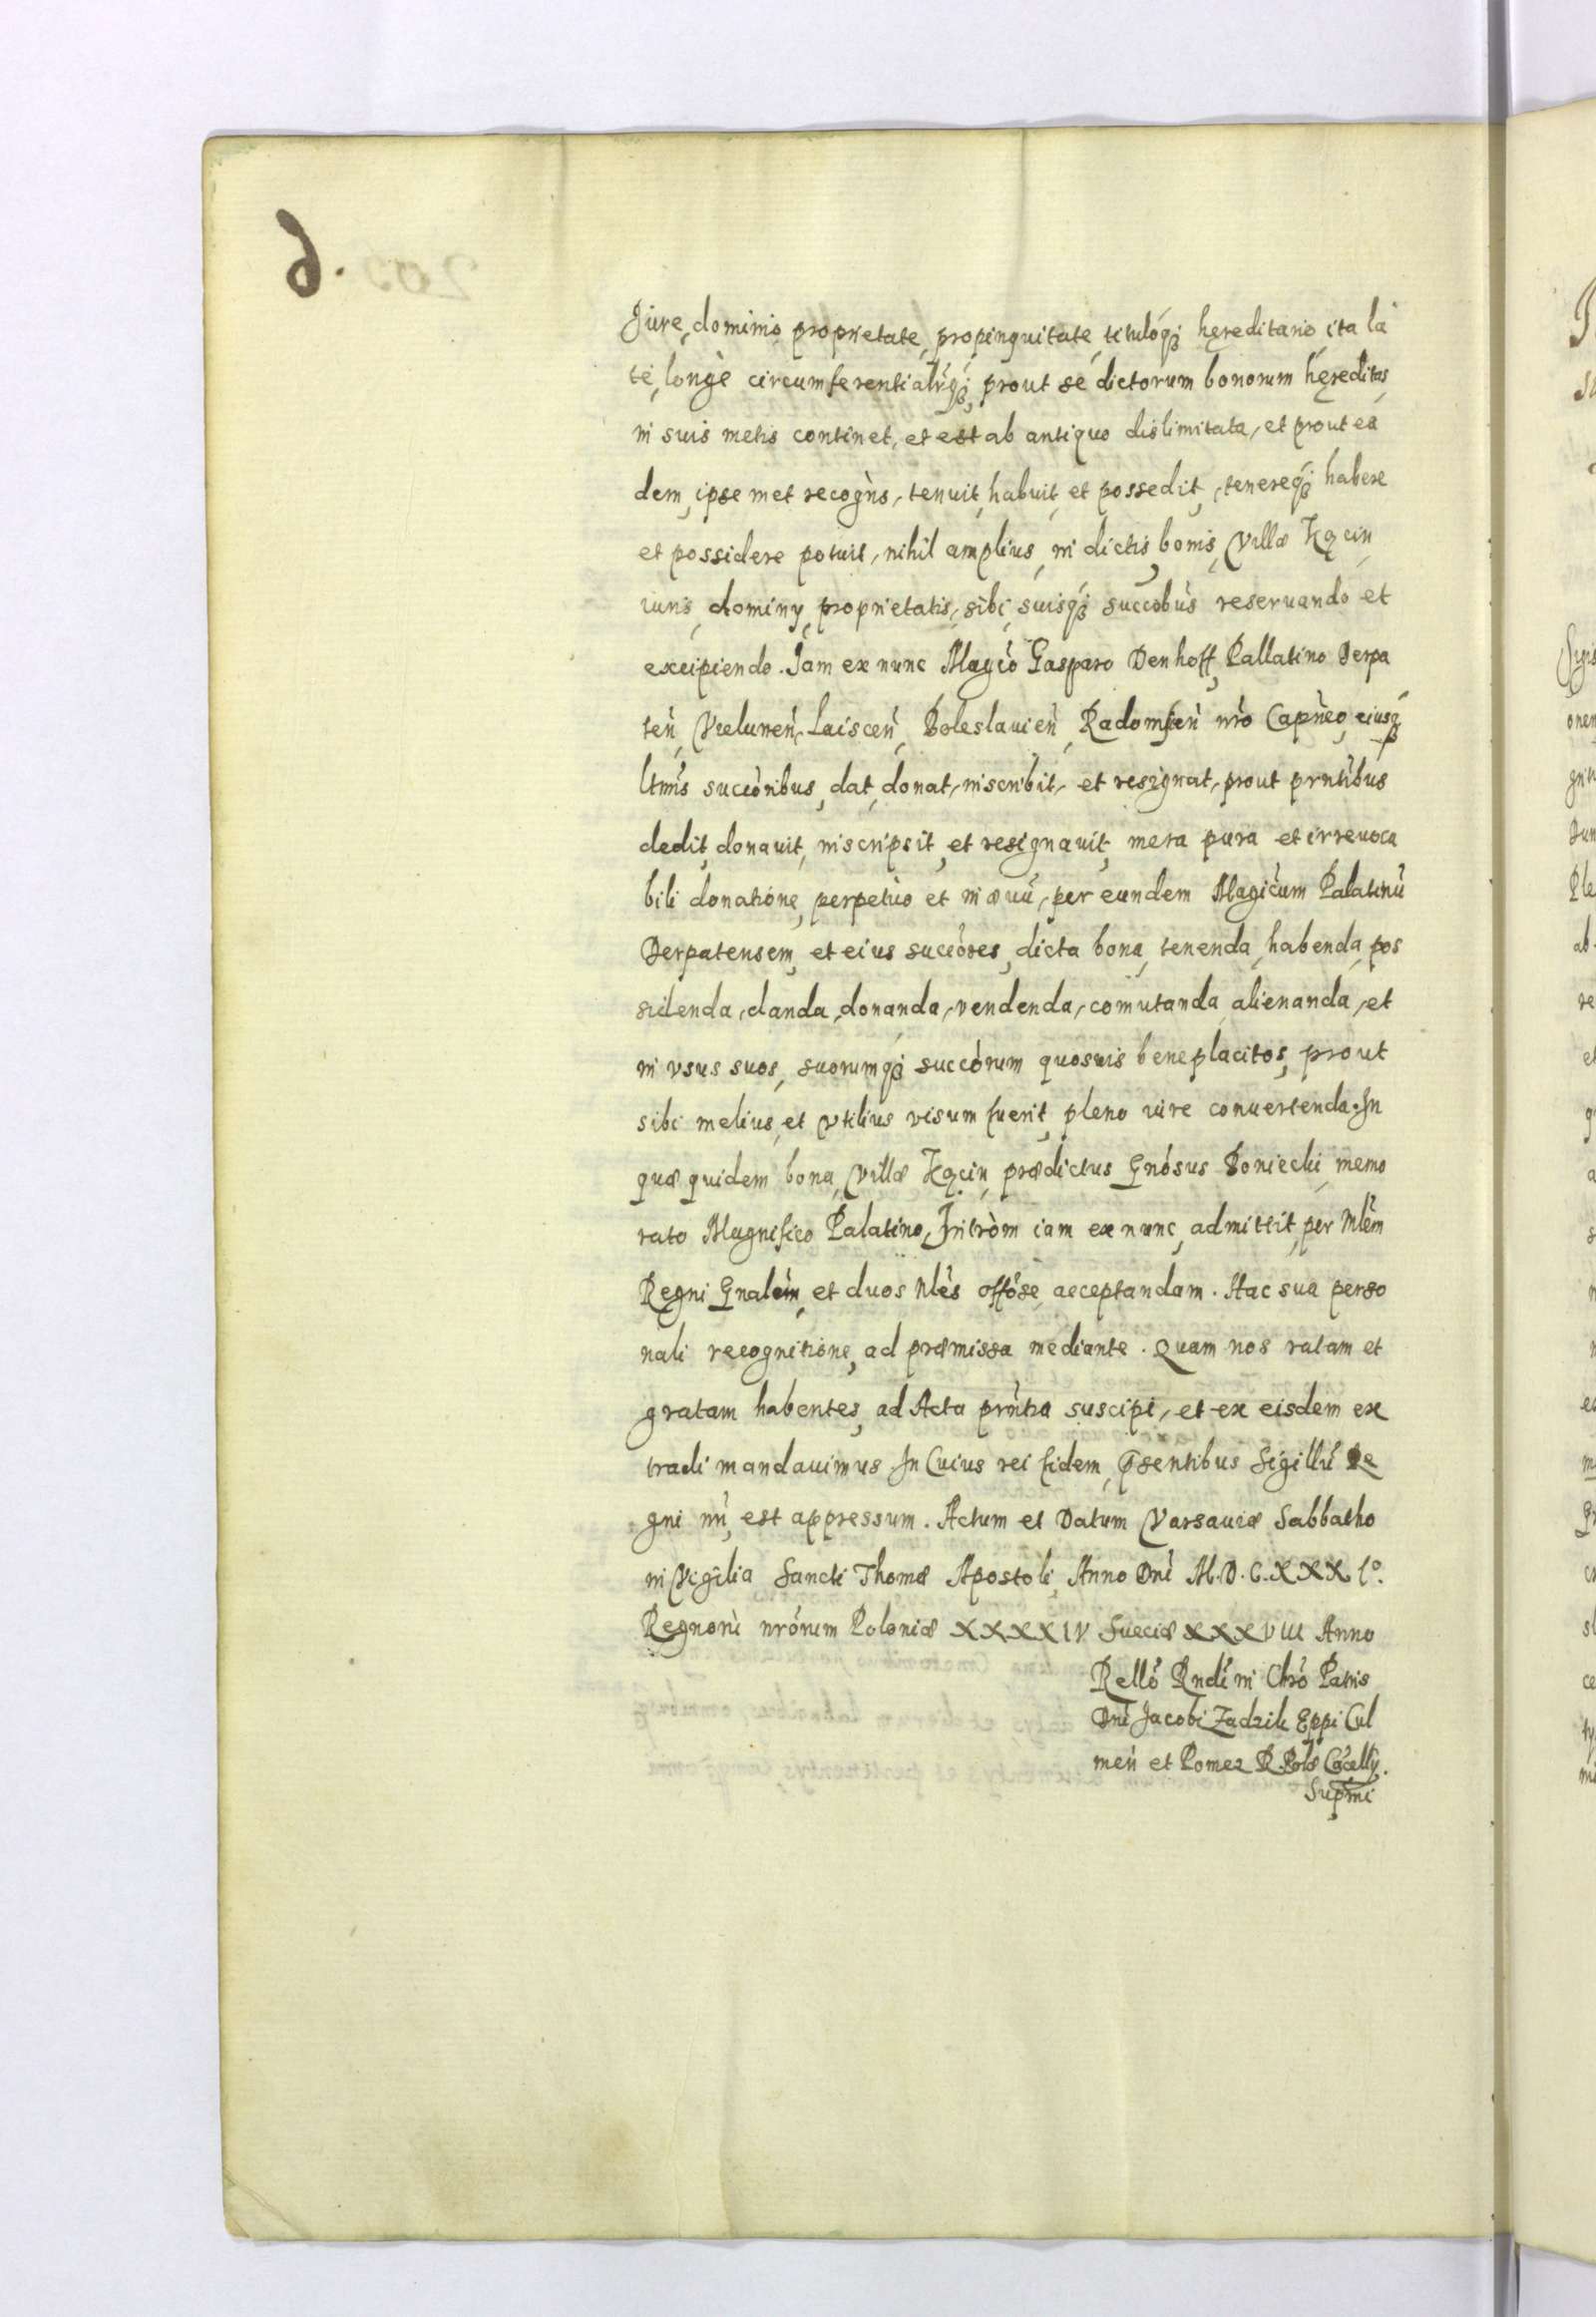 6.
Jure, dominio proprietate, propinquitate, titulóq3 hęreditario, ita la
tè, longè circumferentialrq3, prout se dictorum bonorum hęreditas,
in suis metis continet, et est ab antiquo dislimitata, et prout ea
dem, ipse met recogns, tenuit, habuit, et possedit, tenereq3 habere
et possidere potuit, nihil amplius, in dictis, bonis, Villæ Kącin,
iuris, dominy, proprietatis, sibi, suisq3 succobus reseruando et
excipiendo. Jam ex nunc Magco Gasparo Denhoff, Pallatino Derpa
ten, Vielunen, Laiscen, Boleslauien, Radomsien nro Capneo, eiusq3
ltmis succoribus, dat, donat, inscribit, et resignat, prout prntibus
dedit, donauit, inscripsit, et resignauit, mera pura et irreuoca
bili donatione, perpetuo et in æuũ, per eundem Magicum Palatinũ
Derpatensem, et eius succores, dicta bona, tenenda, habenda, pos
sidenda, danda, donanda, vendenda, comutanda, alienanda, et
in vsus suos, suorumq3 succorum quosuis beneplacitos, prout
sibi melius, et vtilius visum fuerit, pleno iure conuertenda. In
quæ quidem bona, Villæ Kącin, prædictus Gnosus Boniecki, memo
rato Magnifico Palatino, Introm iam ex nunc, admittit, per Mlem
Regni Gnalem, et duos Nles offose acceptandam. Hac sua perso
nali recognitione, ad præmissa mediante. Quam nos ratam et
gratam habentes, ad Acta prntia suscipi, et ex eisdem ex
tradi mandauimus. In Cuius rei fidem, pñsentibus Sigillũ Re
gni nri, est appressum. Actum et Datum Varsauiæ Sabbatho
in Vigilia Sancti Thomæ Apostoli, Anno Dni M.D.C.XXX l°.
Regnorũ nrorum Poloniæ XXXXIV Sueciæ XXXVIII Anno
Rello Rndi in Chro Patris
Dni Jacobi Zadzik Eppi Cul
men et Pomez R. Polæ Cocelly.
Supmi